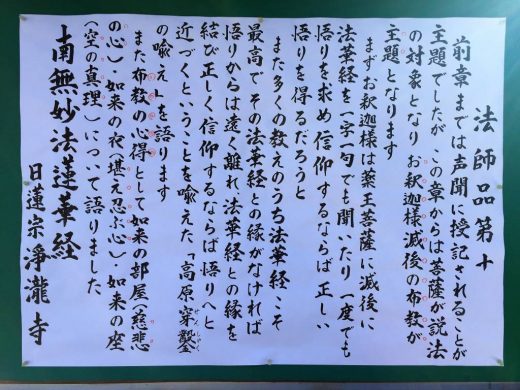 法師品第十
前章までは声聞に授記されることが
主題でしたが この章からは菩薩が説法
の対象となり お釈迦様滅後の布教が
主題となります
まずお釈迦様は薬王菩薩に滅後に
法華経を一字一句でも聞いたり一度でも
悟りを求め信仰するならば正しい
悟りを得るだろうと
また多くの教えのうち法華経こそ
最高で その法華経との縁がなければ
悟りからは遠く離れ 法華経との縁を
結び正しく信仰するならば悟りへと
近づくということを喩えた「高原穿鑿
せんしゃく
の喩え」を語ります
また布教の心得として如来の部屋(慈悲
の心)・如来の衣(堪え忍ぶ心)・如来の座
(空の真理)について語りました
南無妙法蓮華経
日蓮宗浄瀧寺